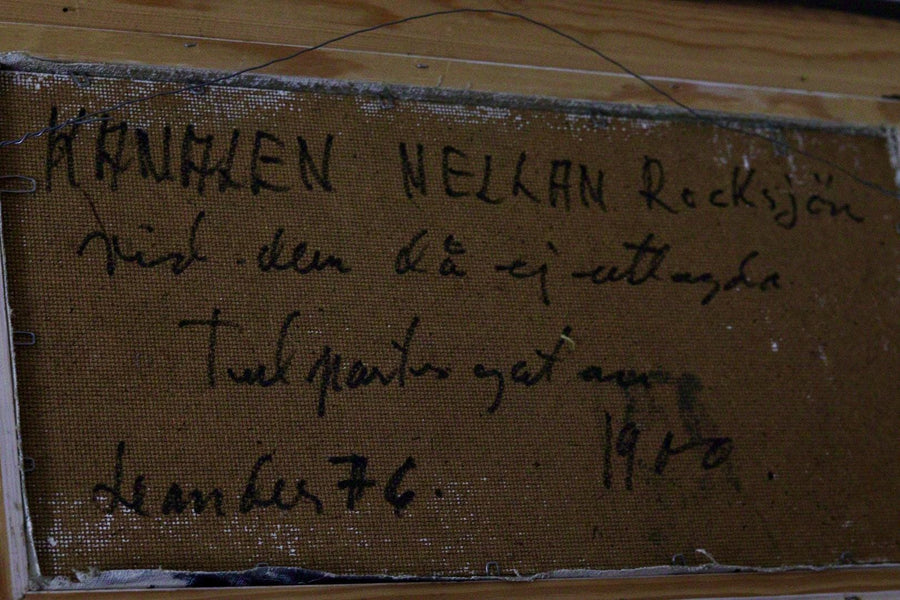 KANALEN MELLAN Rocksjön
vid den då ej utlagda
Tullportsgatan
Leander 76.